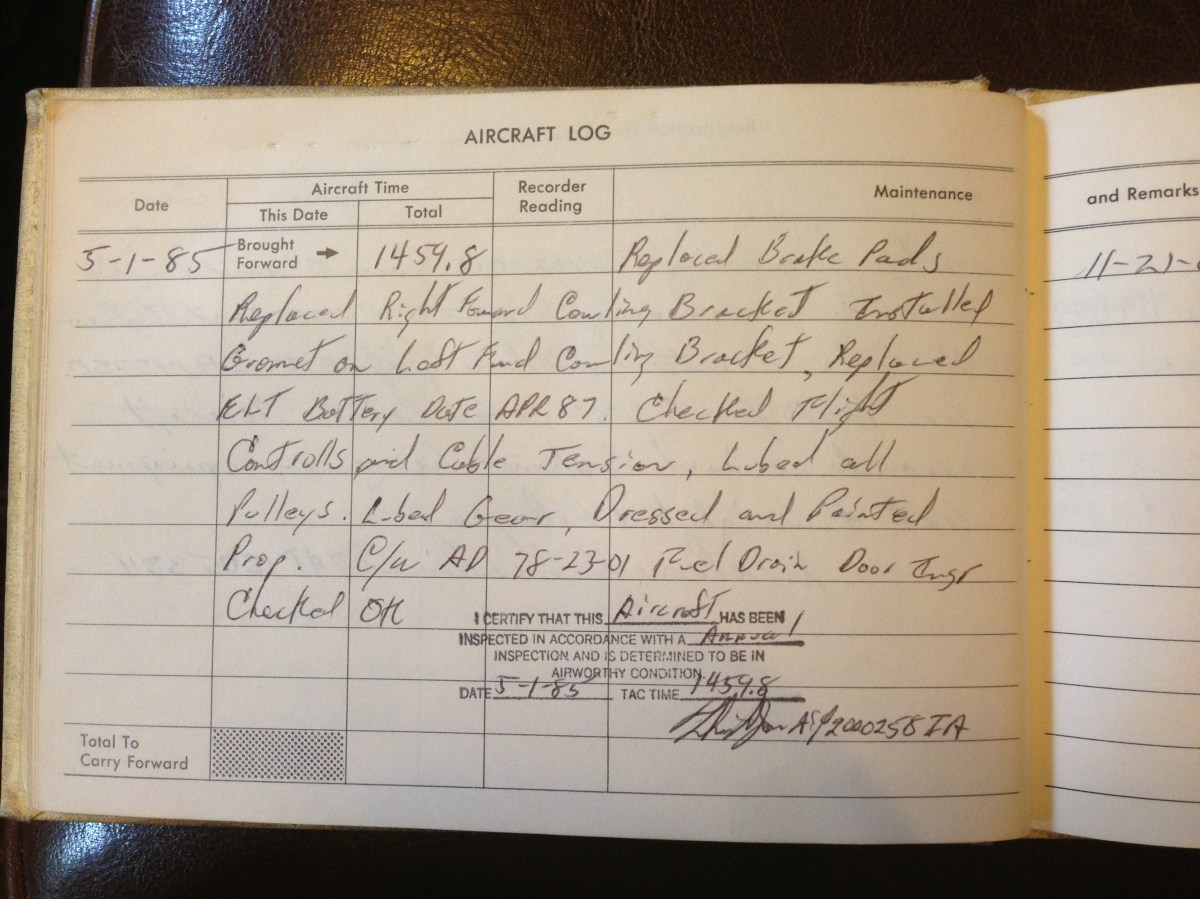 AIRCRAFT LOG
Date
Aircraft Time
This Date
Total
Recorder
Reading
Maintenance
and Remarks
5-1-85
Brought
Forward →
1459.8
Replaced Brake Pads
11-21-
Replaced Right Forward Cowling Bracket Installed
Gromet on Left Fwd Cowling Bracket, Replaced
ELT Battery Date APR 87. Checked Flight
Controlls and Cable Tension, Lubed all
Pulleys. Lubed Gear, Dressed and Painted
Prop. C/w AD 78-23-01 Fuel Drain Door Insp
Checked OK
I CERTIFY THAT THIS Aircraft HAS BEEN
INSPECTED IN ACCORDANCE WITH A Annual
INSPECTION AND IS DETERMINED TO BE IN
AIRWORTHY CONDITION
DATE 5-1-85 TAC TIME 1459.8
2000258 IA
Total To
Carry Forward